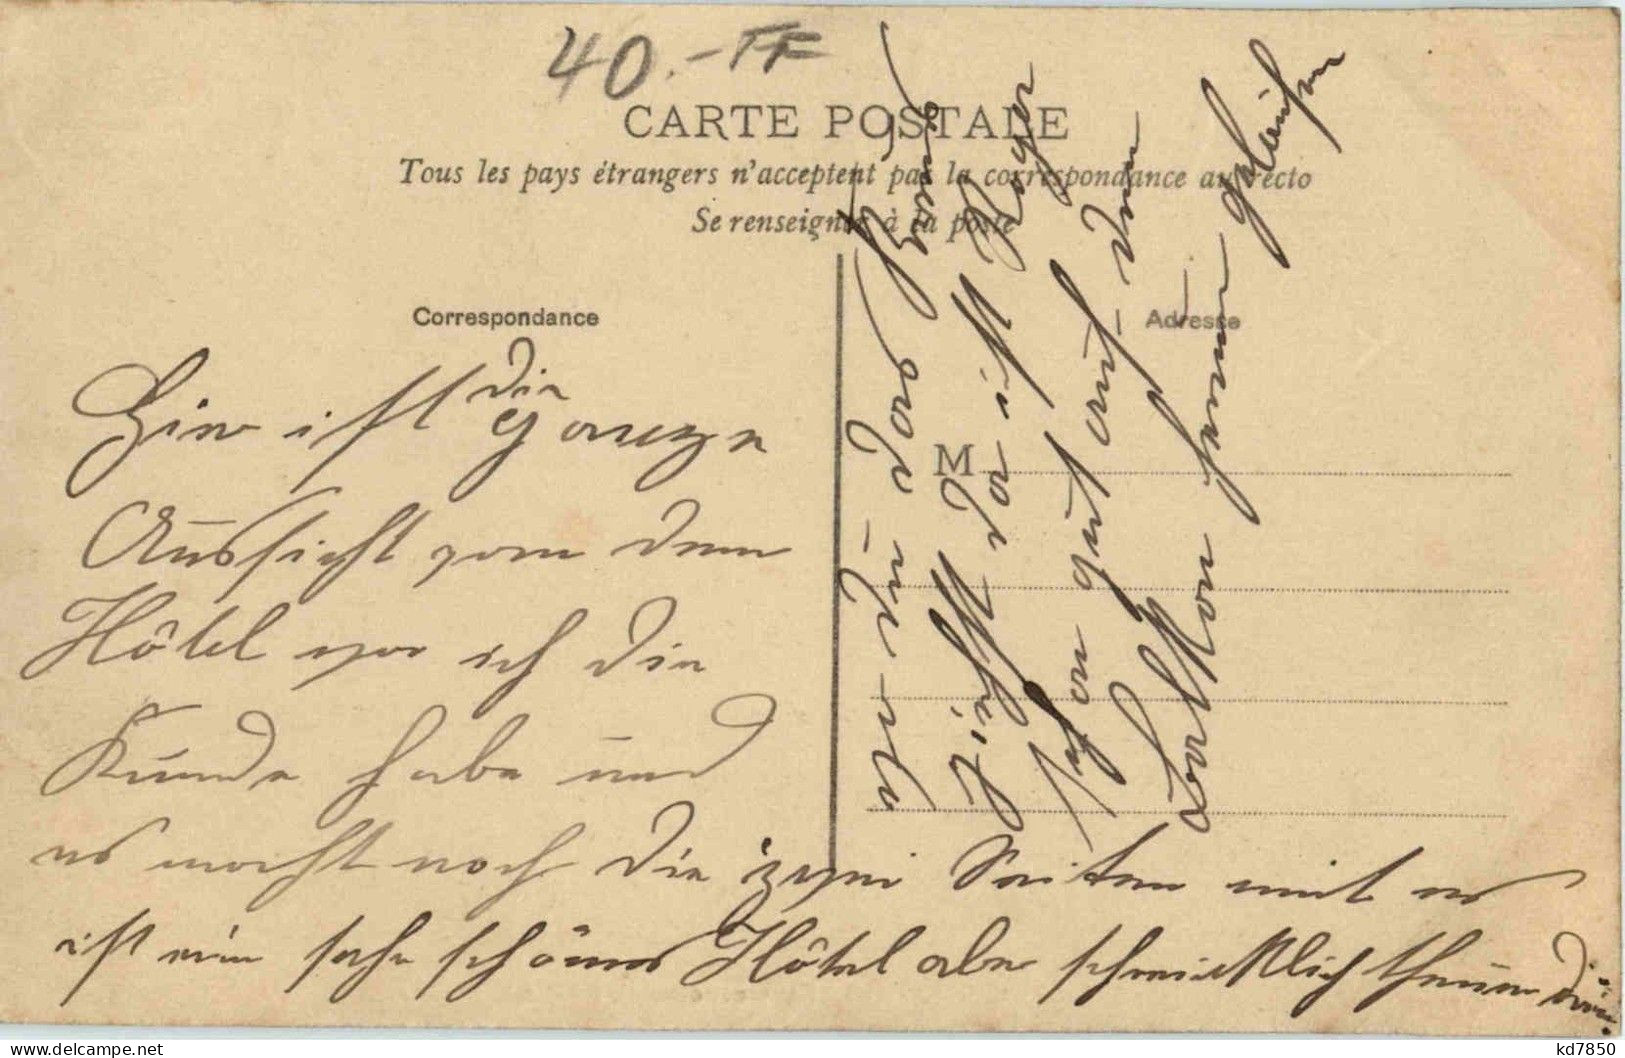 40.- FF
CARTE POSTALE
Tous les pays étrangers n'acceptent pas la correspondance au recto
Se renseigner à la poste
Correspondance
Adresse
M
Hier ist die ganze
Aussicht von dem
Hôtel wo ich die
Kunde habe und
es macht noch die zwei Seiten mit es
ist ein sehr schönes Hôtel aber schrecklich theuer
wo du das
siehst da ist Roger
schon gut auf dem
Balkon
kd7850